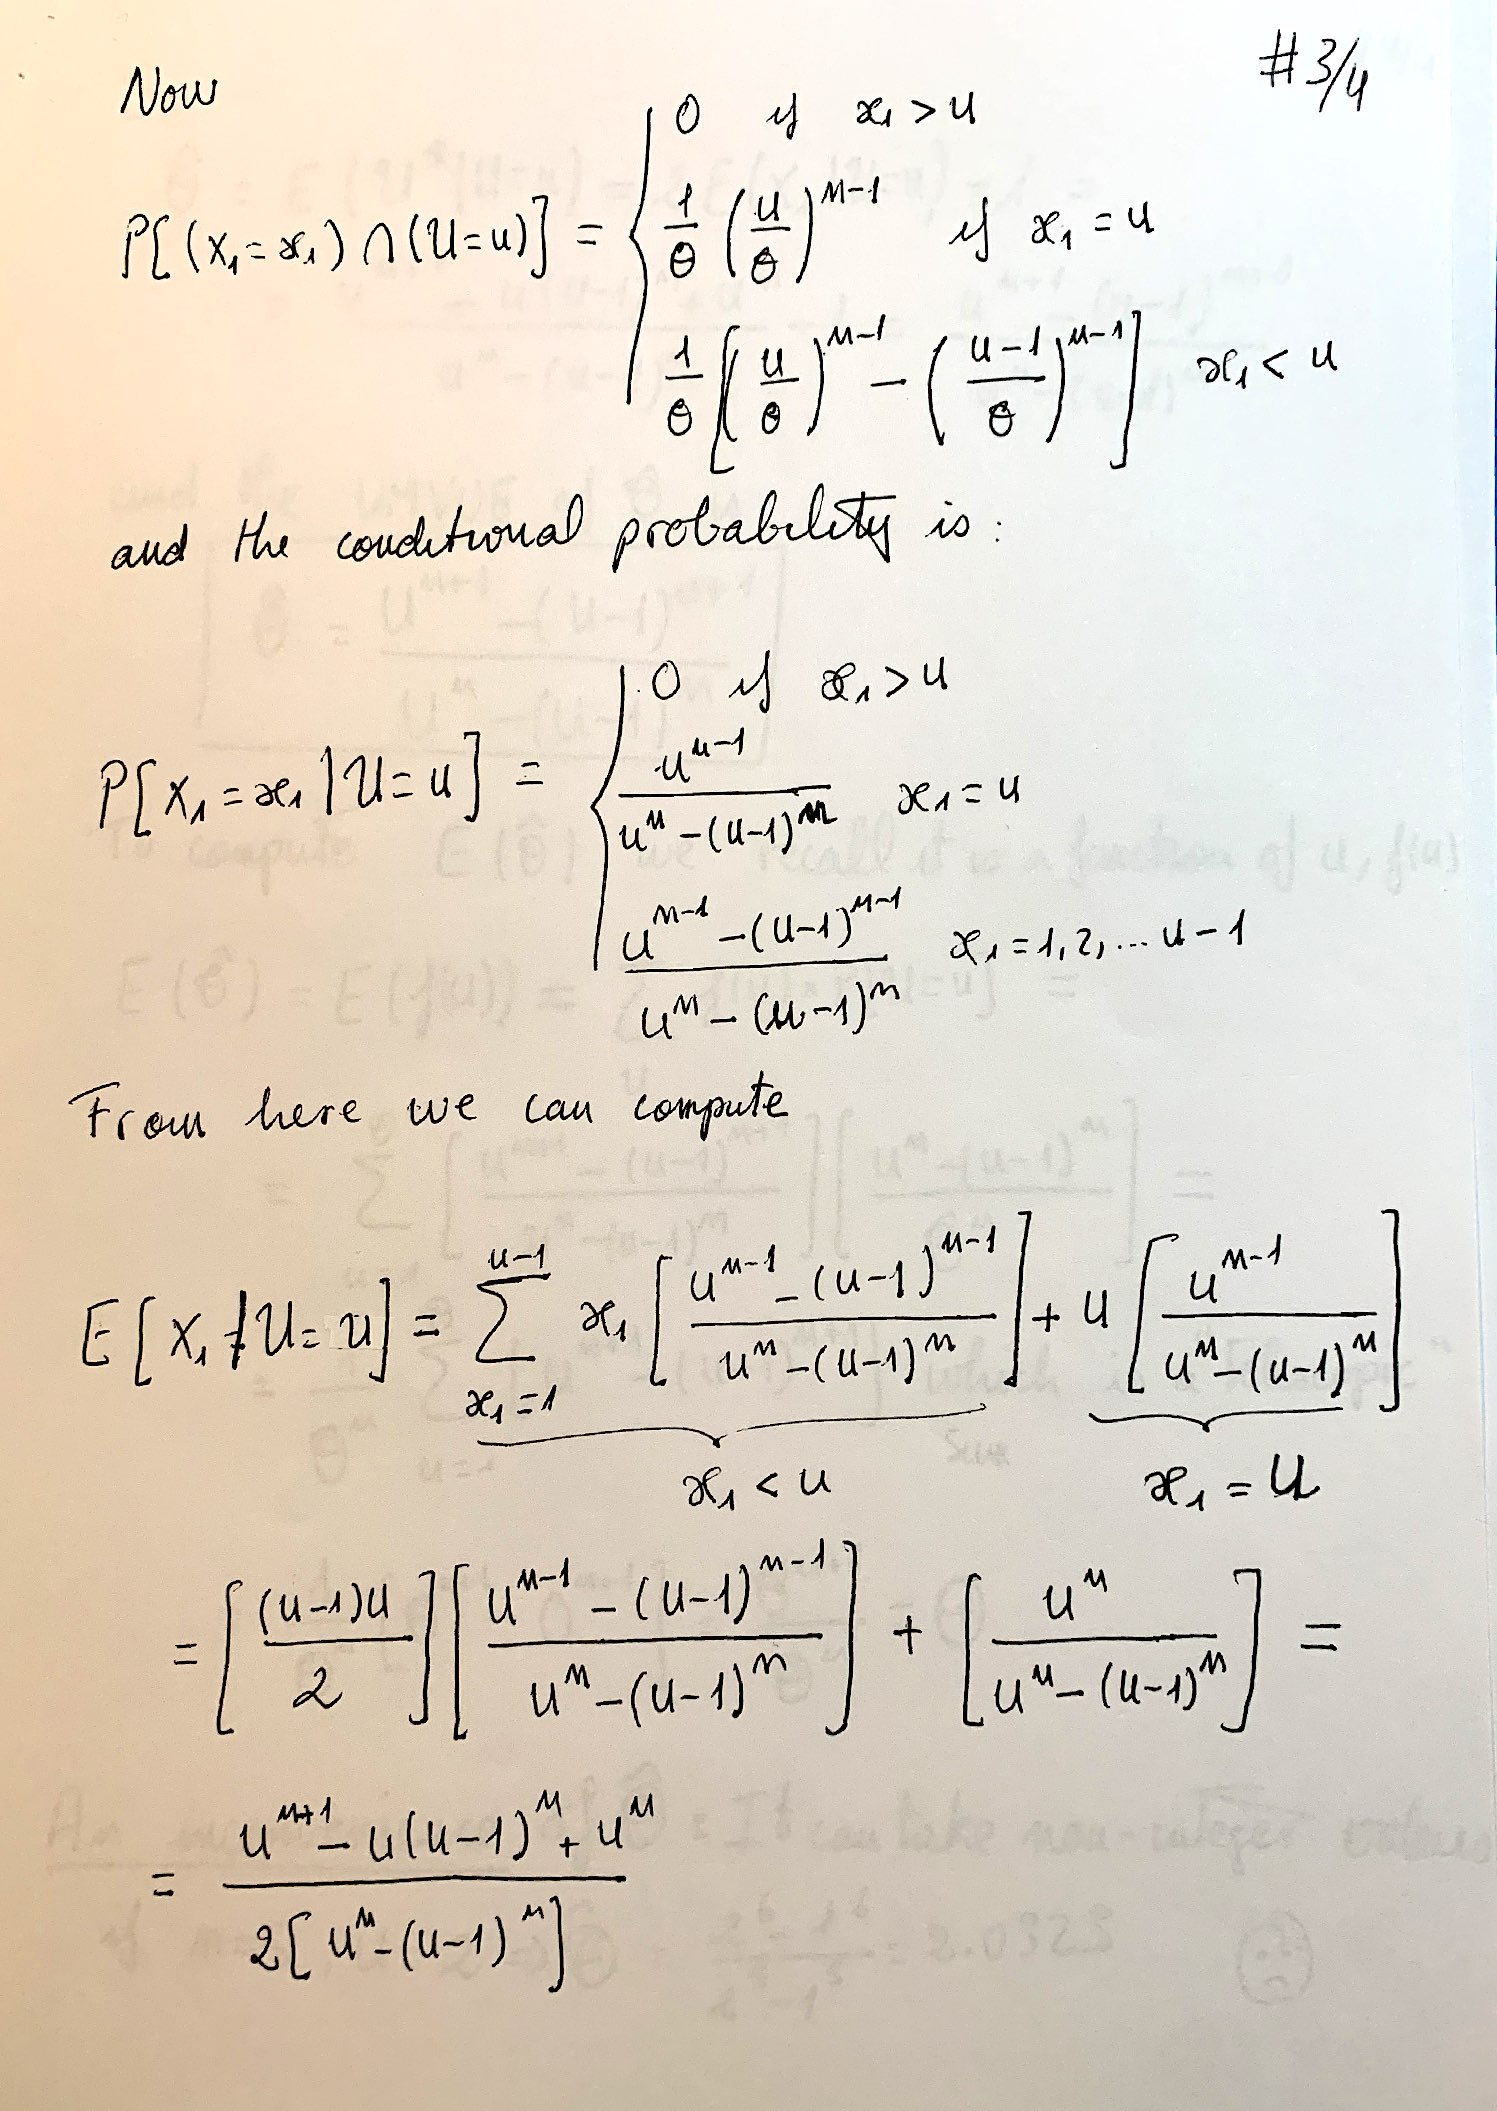 #3/4
Now
P[(X₁=x₁)∩(U=u)] = { 0 if x₁>u
1/θ (u/θ)^(n-1) if x₁=u
1/θ [(u/θ)^(n-1) - ((u-1)/θ)^(n-1)] x₁<u
and the conditional probability is:
P[X₁=x₁|U=u] = { 0 if x₁>u
u^(n-1) / (u^n-(u-1)^n) x₁=u
(u^(n-1)-(u-1)^(n-1)) / (u^n-(u-1)^n) x₁=1,2,...u-1
From here we can compute
E[X₁|U=u] = ∑_{x₁=1}^{u-1} x₁ [(u^(n-1)-(u-1)^(n-1)) / (u^n-(u-1)^n)] + u [u^(n-1) / (u^n-(u-1)^n)]
x₁<u x₁=u
= [(u-1)u / 2] [(u^(n-1)-(u-1)^(n-1)) / (u^n-(u-1)^n)] + [u^n / (u^n-(u-1)^n)] =
= (u^(n+1)-u(u-1)^n+u^n) / (2[u^n-(u-1)^n])